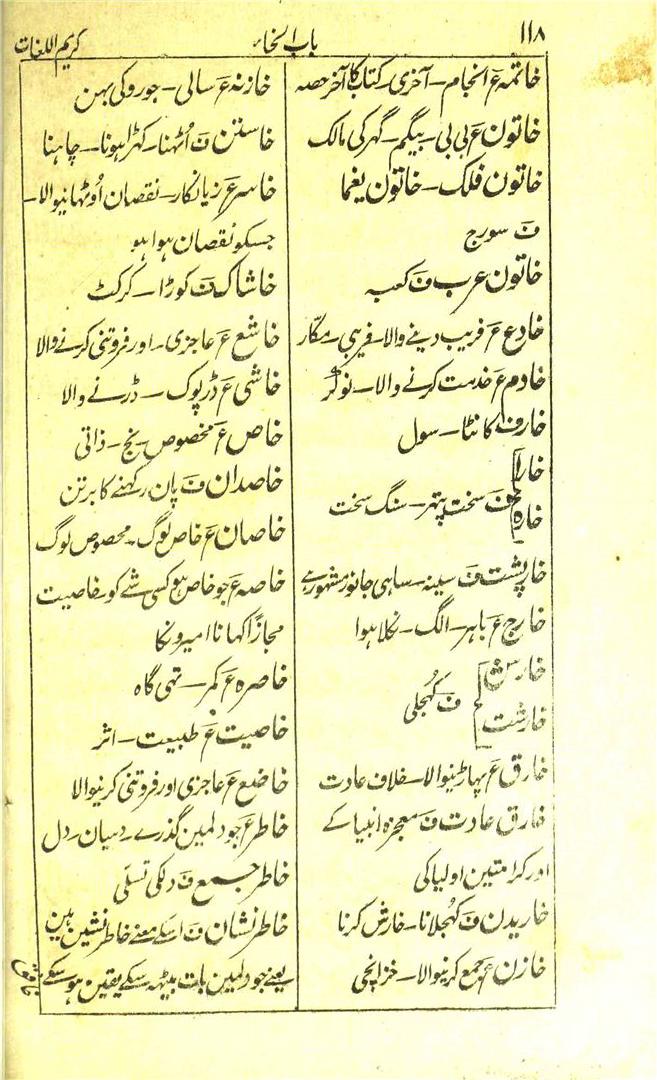 ۱۱۸
باب الخاء
کریم اللغات
خاتمہ ع انجام۔ آخری۔ کتاب کا آخر حصہ
خاتون ع بی بی۔ بیگم۔ گھر کی مالک
خاتون فلک۔ خاتون یغما
ف سورج
خاتون عرب ف کعبہ
خادع ع فریب دینے والا۔ فریبی۔ مکّار
خادم ع خدمت کرنے والا۔ نوکر
خار ف کانٹا۔ سول
خارا
خارہ
ف سخت پتھر۔ سنگ سخت
خارپشت ف سیہنہ۔ ساہی جانور مشہور ہے
خارج ع باہر۔ الگ۔ نکلا ہوا
خارش
خارشت
ف کُھجلی
خارق ع پہاڑنیوالا۔ خلاف عادت
خارق عادت ف معجزہ انبیا کے
اور کرامتین اولیا کی
خاریدن ف کُھجلانا۔ خارش کرنا
خازن ع جمع کرنیوالا۔ خزانچی
خازنہ ع سالی۔ جورو کی بہن
خاستن ف اُٹھنا۔ کھڑا ہونا۔ چاہنا
خاسر ع زیانکار۔ نقصان اُوٹھانیوالا۔
جسکو نقصان ہوا ہو
خاشاک ف کوڑا۔ کرکٹ
خاشع ع عاجزی۔ اور فروتنی کرنے والا
خاشی ع ڈرپوک۔ ڈرنے والا
خاص ع مخصوص۔ نج۔ ذاتی
خاصدان ف پان رکھنے کا برتن
خاصان ع خاص لوگ۔ مخصوص لوگ
خاصہ ع جو خاص ہو کسی شے کو۔ خاصیت
مجازًا کھانا امیرونکا
خاصرہ ع کمر۔ تہی گاہ
خاصیت ع طبیعت۔ اثر
خاضع ع عاجزی اور فروتنی کرنیوالا
خاطر ع جو دلمین گذرے۔ دہیان۔ دل
خاطر جمع ف دلکی تسلّی
خاطر نشان ف اسکے معنے خاطر نشین ہین
یعنے جو دلمین بات بیٹھ سکے یقین ہو سکے